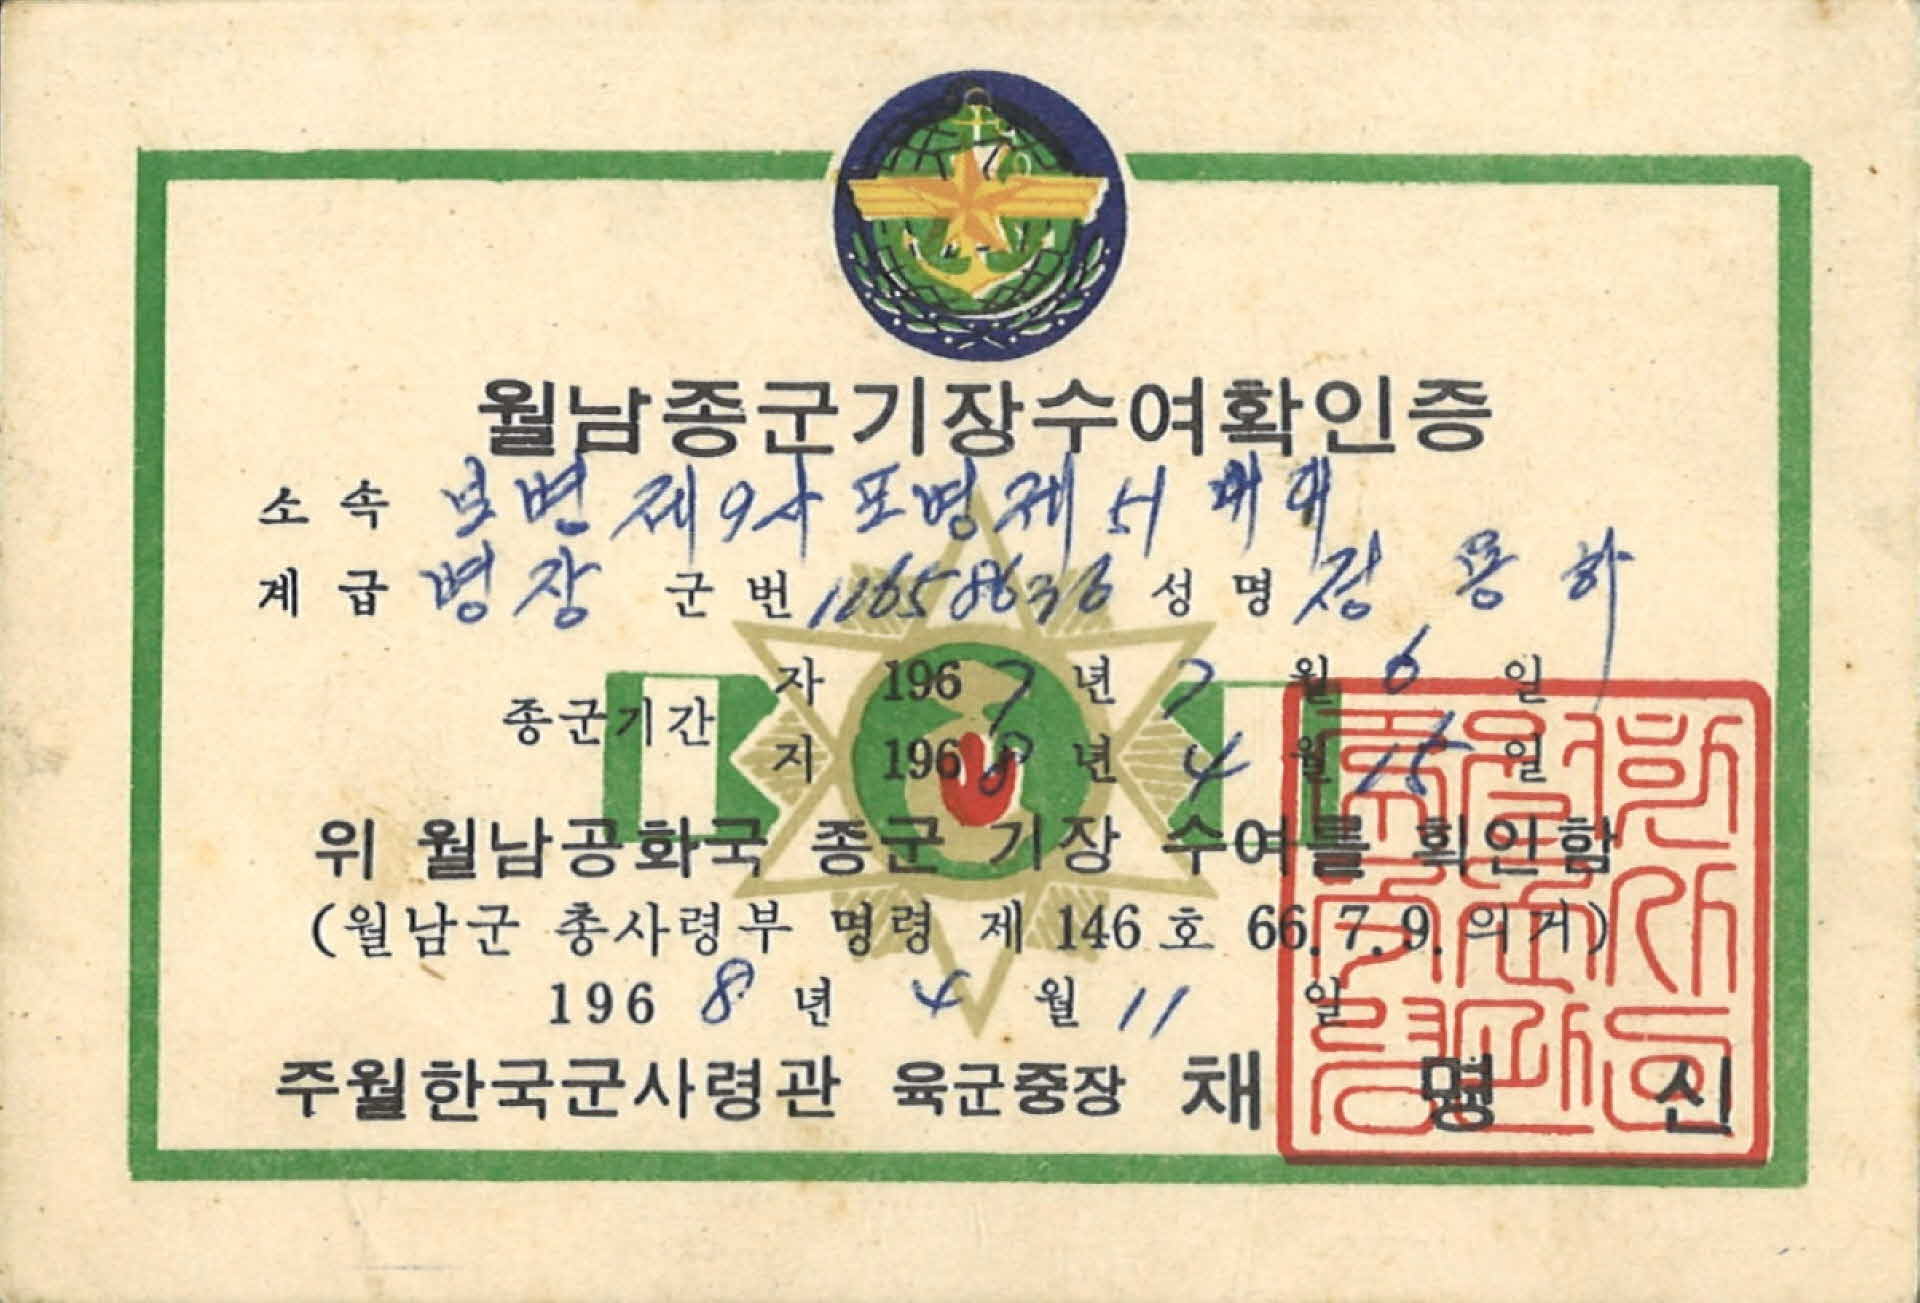 월남종군기장수여확인증
소속 보병 제9사 포병 제51 대대
계급 병장 군번 11658636 성명 정용하
종군기간 자 1967년 7월 6일
지 1968년 4월 15일
위 월남공화국 종군 기장 수여를 확인함
(월남군 총사령부 명령 제 146 호 66.7.9. 의거)
1968년 4월 11일
주월한국군사령관 육군중장 채명신